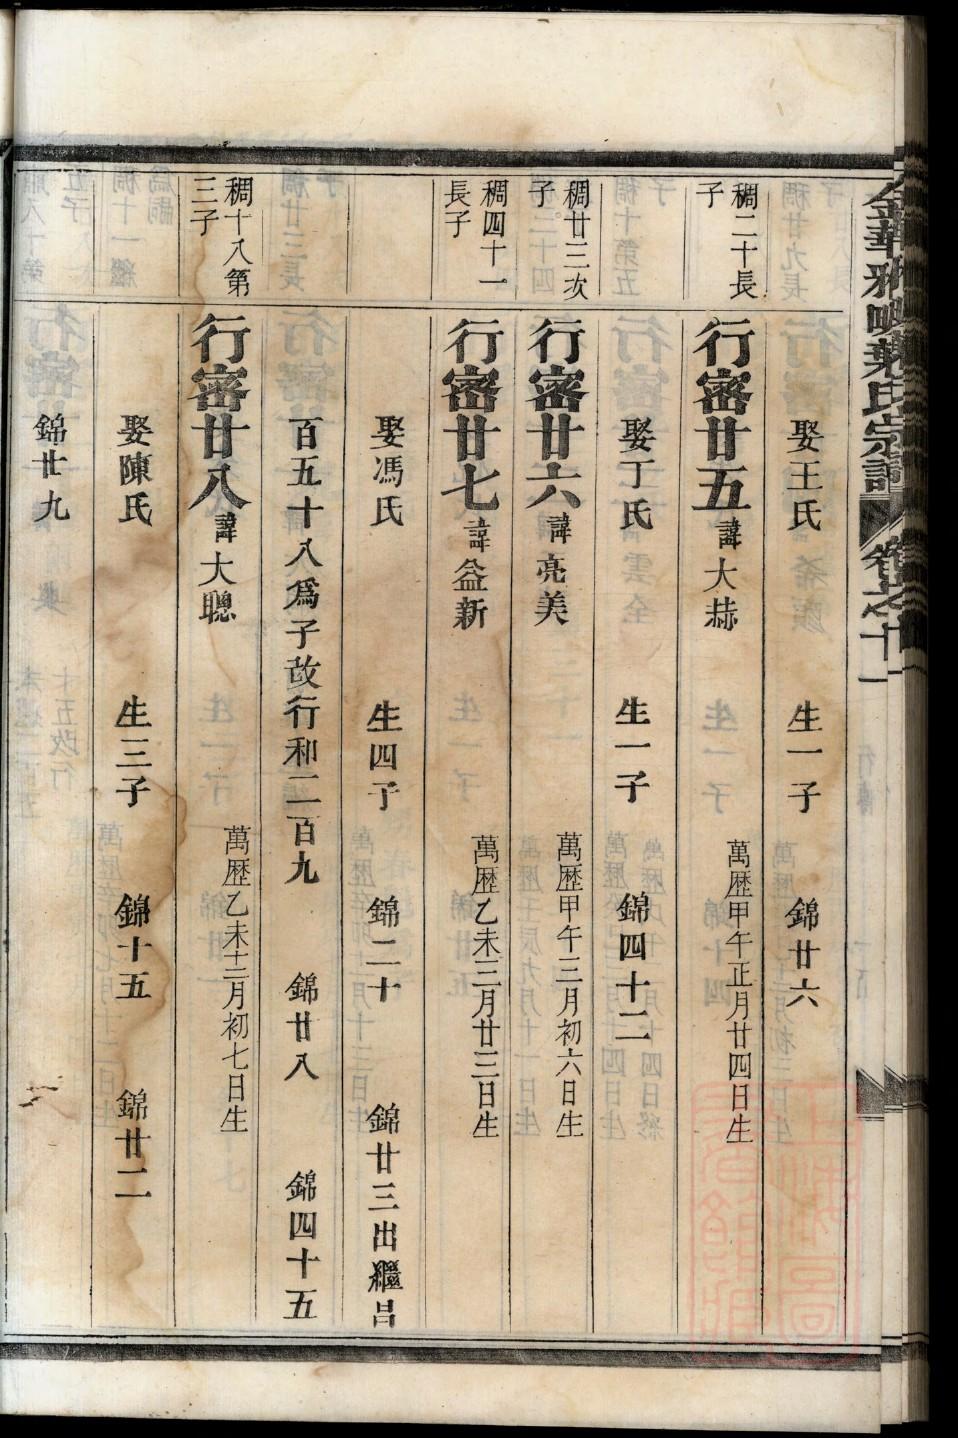 娶王氏 生一子 錦廿六
稠二十長子
行審廿五 諱大赫 萬歷甲午正月廿四日生
娶丁氏 生一子 錦四十二
稠廿三次子
行審廿六 諱亮美 萬歷甲午三月初六日生
稠四十一長子
行審廿七 諱益新 萬歷乙未三月廿三日生
娶馮氏 生四子 錦二十 錦廿三出繼呂
百五十八爲子改行和二百九 錦廿八 錦四十五
稠十八第三子
行審廿八 諱大聰 萬歷乙未十二月初七日生
娶陳氏 生三子 錦十五 錦廿二
錦廿九